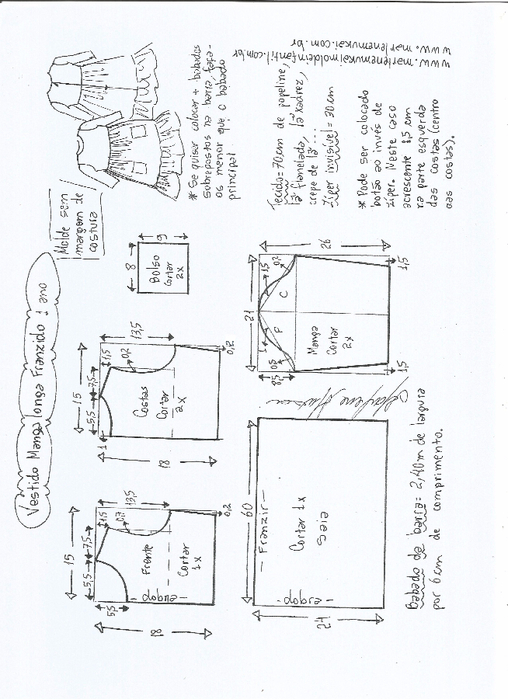 Vestido Manga longa Franzido 1 ano
Molde sem
margem de
costura
* Se quiser colocar + babados
sobrepostos na barra, faça-
os menor que o babado
principal
www.marlenemukaimoldeinfantil.com.br
www.marlenemukai.com.br
Tecido=70cm de popeline,
lã flanelada, lã xadrez,
crepe de lã...
Zíper invisível= 30cm
* Pode ser colocado
botão ao invés de
zíper. Neste caso
acrescente 1,5 cm
na parte esquerda
das costas (centro
das costas).
15
5,5
7,5
1,5
0,2
13,5
5,5
Frente
Cortar
1x
dobra
0,2
15
5,5
7,5
1,5
0,2
1
13,5
18
Costas
Cortar
2x
0,2
8
9
Bolso
Cortar
2x
60
Franzir
Cortar 1x
Saia
dobra
21
1,5
0,2
F
C
Manga
Cortar
2x
26
1,5
1,5
Babado da barra= 2,40m de largura
por 6cm de comprimento.